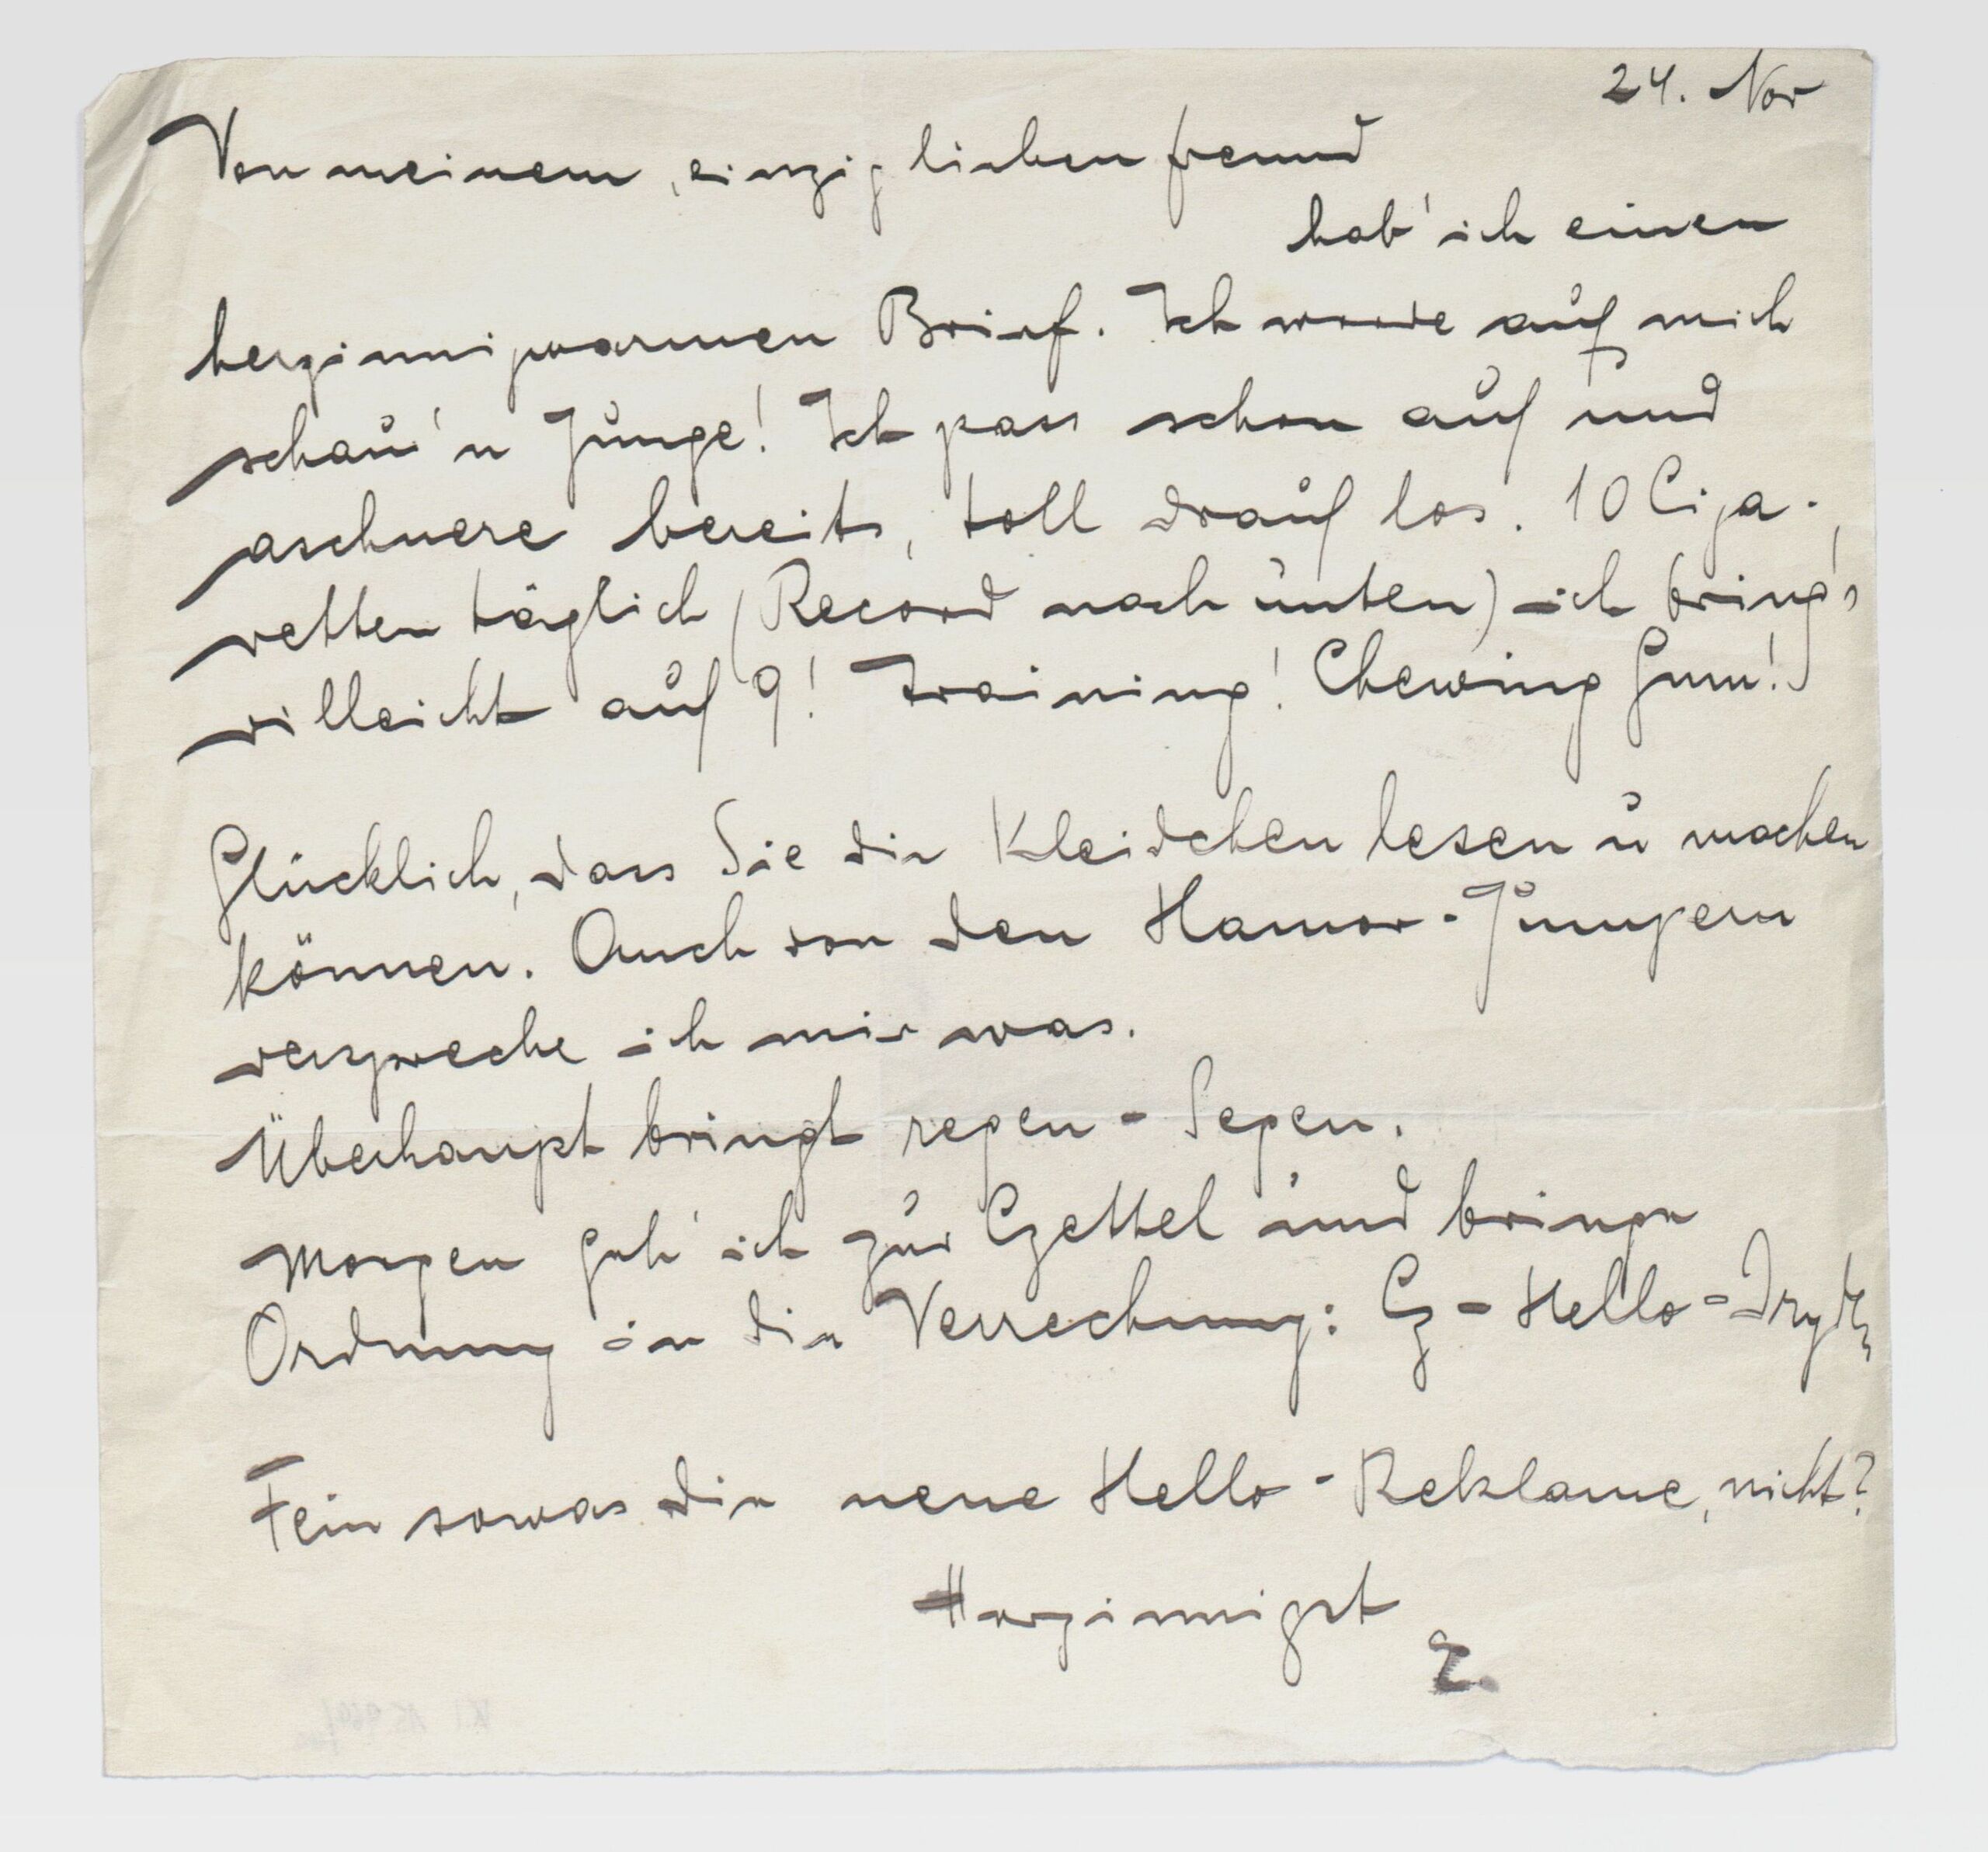 24. Nov
Von meinem, einzig lieben freund
hab' ich einen
herzinnigwarmen Brief. Ich werde auf mich
schau'n Junge! Ich pass schon auf und
bereits, toll drauf los. 10 Ciga-
retten täglich (Record nach unten) ich bring's
villeicht auf 9! Training! Chewing Gum!
Glücklich, dass Sie die Kleidchen lesen u machen
können. Auch von den Jumpern
verspreche ich mir was.
Überhaupt bringt regen - Segen.
Morgen geh' ich zur Czettel und bringe
Ordnung in die Verrechnung: Cz - Hello -
Fein sowas die neue Hello - Reklame, nicht?
Herzinnigst
Z.